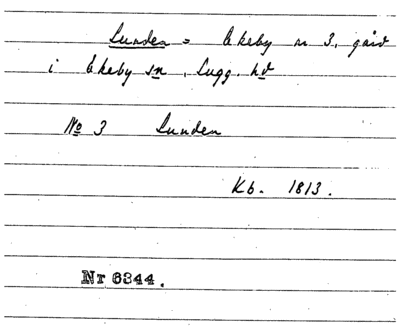 Lunden = Ekeby nr 3, gård
i Ekeby sn, Lugg. hd
No 3 Lunden
Kb. 1813.
Nr 6344.